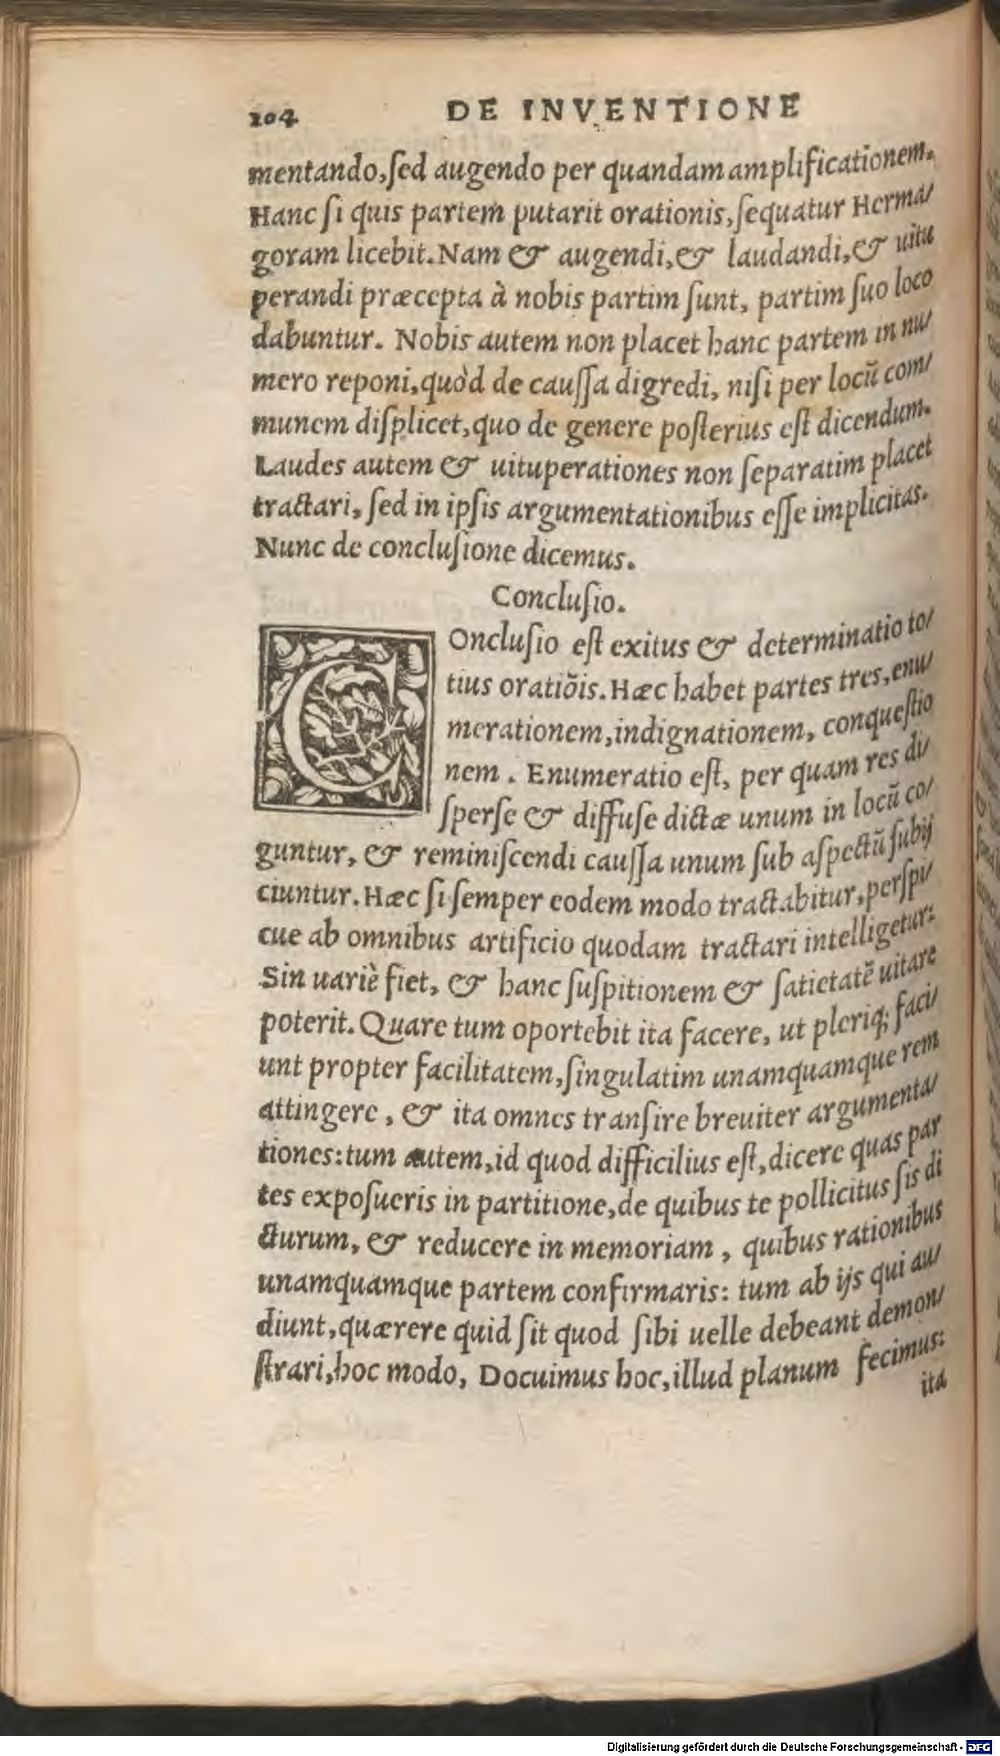 204 DE INVENTIONE
mentando,ſed augendo per quandam amplificationem.
Hanc ſi quis partem putarit orationis,ſequatur Herma/
goram licebit.Nam & augendi,& laudandi,& uitu
perandi præcepta à nobis partim ſunt, partim ſuo loco
dabuntur. Nobis autem non placet hanc partem in nu/
mero reponi,quòd de cauſſa digredi, niſi per locū com/
munem diſplicet,quo de genere poſterius eſt dicendum.
Laudes autem & uituperationes non ſeparatim placet
tractari, ſed in ipſis argumentationibus eſſe implicitas.
Nunc de concluſione dicemus.
Concluſio.
COncluſio eſt exitus & determinatio to/
tius oratiõis.Hæc habet partes tres,enu/
merationem,indignationem, conqueſtio
nem . Enumeratio eſt, per quam res di/
ſperſe & diffuſe dictæ unum in locū co/
guntur, & reminiſcendi cauſſa unum ſub aſpectū ſubij
ciuntur.Hæc ſi ſemper eodem modo tractabitur,perſpi/
cue ab omnibus artificio quodam tractari intelligetur:
Sin uariè fiet, & hanc ſuſpitionem & ſatietatē uitare
poterit.Quare tum oportebit ita facere, ut pleriq; faci/
unt propter facilitatem,ſingulatim unamquamque rem
attingere , & ita omnes tranſire breuiter argumenta/
tiones:tum autem,id quod difficilius eſt,dicere quas par
tes expoſueris in partitione,de quibus te pollicitus ſis di
cturum, & reducere in memoriam , quibus rationibus
unamquamque partem confirmaris: tum ab ijs qui au/
diunt,quærere quid ſit quod ſibi uelle debeant demon/
ſtrari,hoc modo, Docuimus hoc,illud planum fecimus:
ita
Digitalisierung gefördert durch die Deutsche Forschungsgemeinschaft - DFG